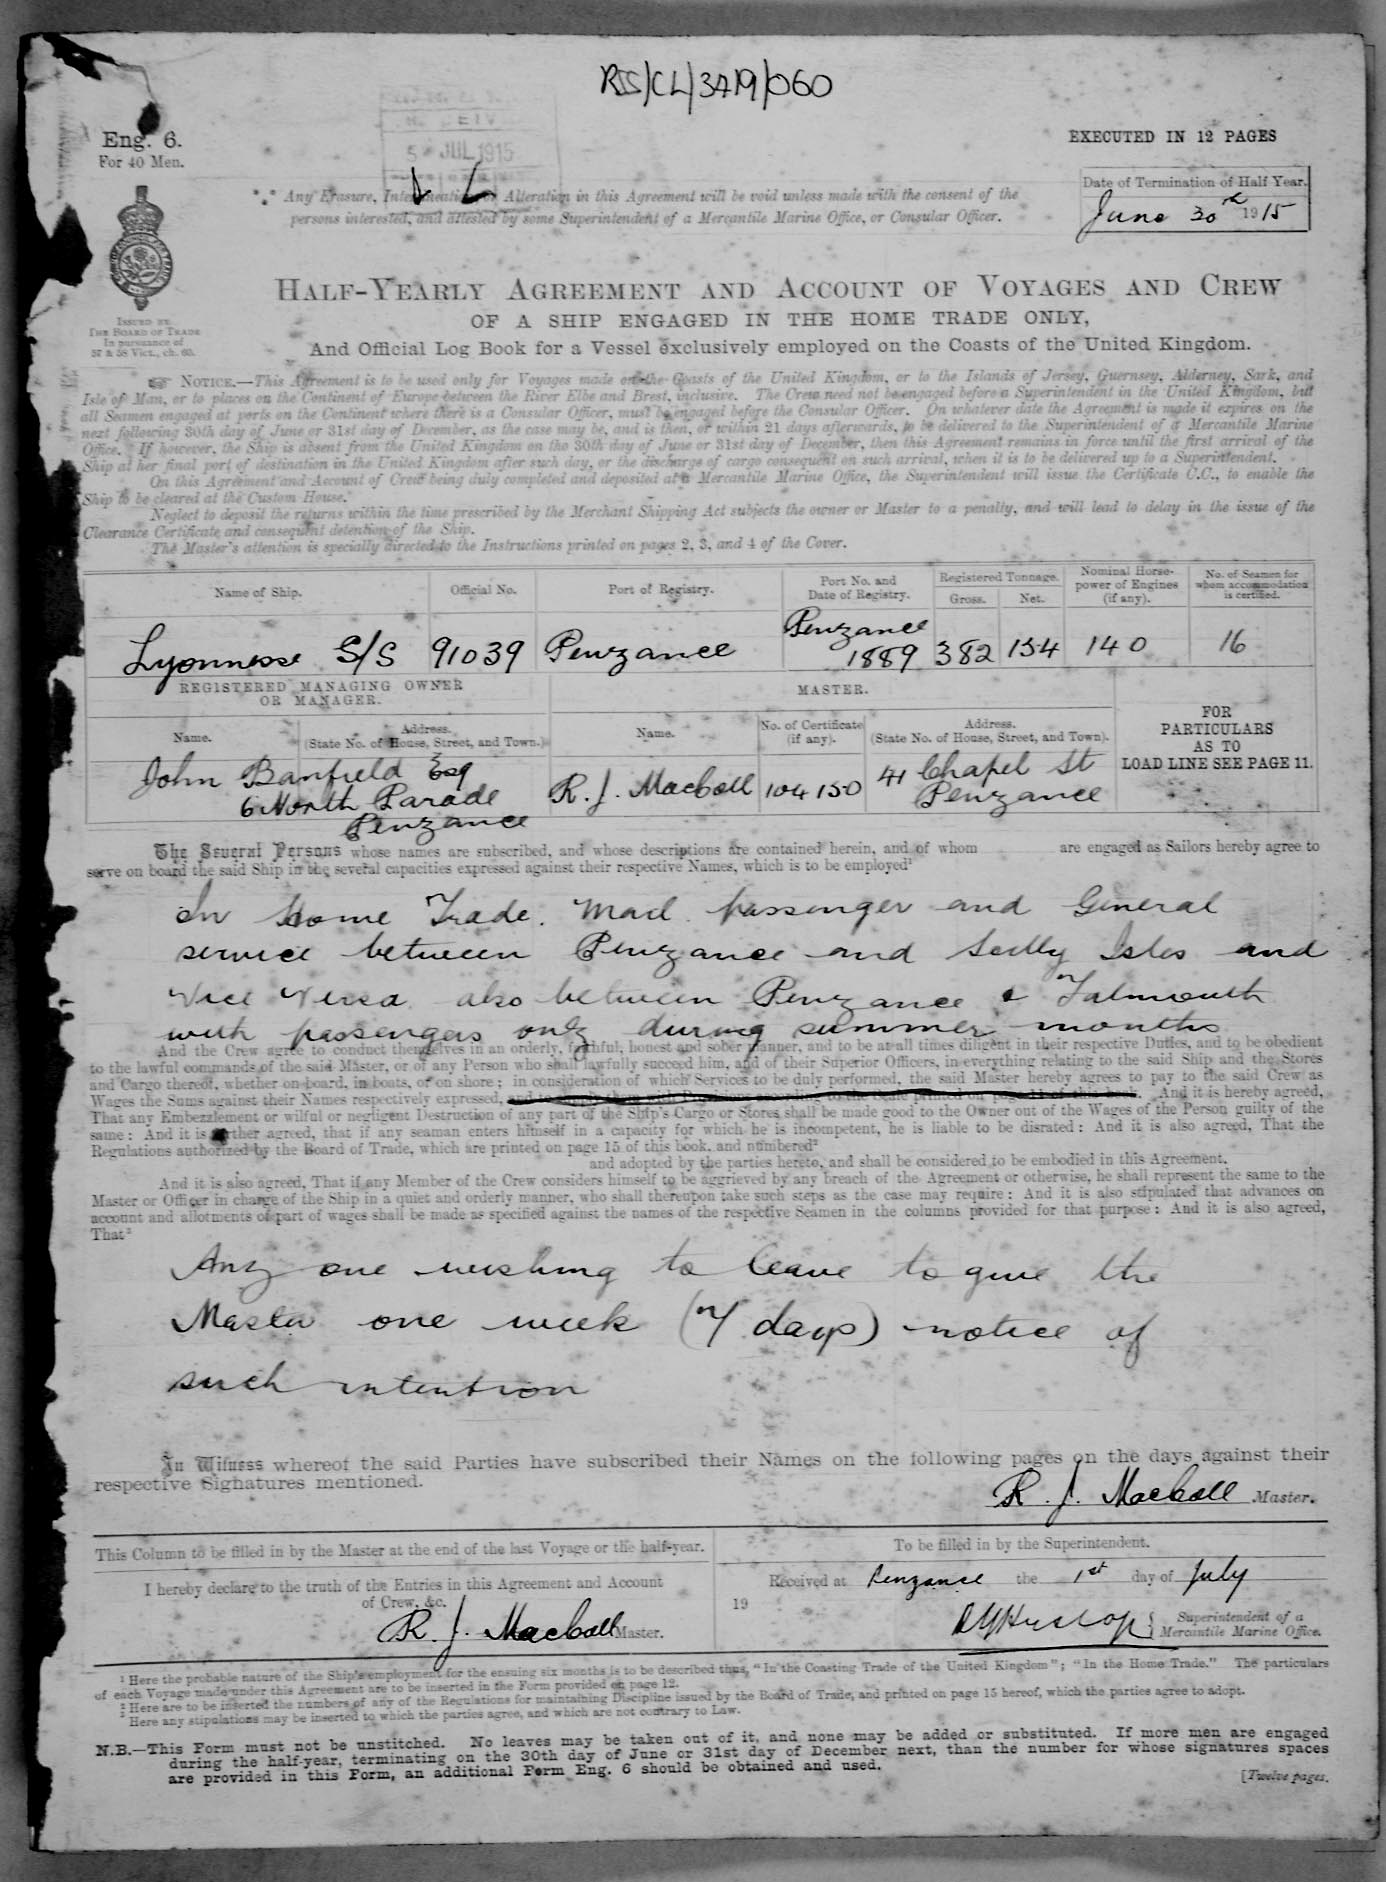 RSS/CL/3A19/060
Eng. 6.
For 40 Men.
5 JUL 1915
EXECUTED IN 12 PAGES
Date of Termination of Half Year.
June 30th 1915
*.* Any Erasure, Interlineation or Alteration in this Agreement will be void unless made with the consent of the
persons interested, and attested by some Superintendent of a Mercantile Marine Office, or Consular Officer.
ISSUED BY
THE BOARD OF TRADE
In pursuance of
57 & 58 Vict., ch. 60.
HALF-YEARLY AGREEMENT AND ACCOUNT OF VOYAGES AND CREW
OF A SHIP ENGAGED IN THE HOME TRADE ONLY,
And Official Log Book for a Vessel exclusively employed on the Coasts of the United Kingdom.
☞ NOTICE.—This Agreement is to be used only for Voyages made on the Coasts of the United Kingdom, or to the Islands of Jersey, Guernsey, Alderney, Sark, and
Isle of Man, or to places on the Continent of Europe between the River Elbe and Brest, inclusive. The Crew need not be engaged before a Superintendent in the United Kingdom, but
all Seamen engaged at ports on the Continent where there is a Consular Officer, must be engaged before the Consular Officer. On whatever date the Agreement is made it expires on the
next following 30th day of June or 31st day of December, as the case may be, and is then, or within 21 days afterwards, to be delivered to the Superintendent of a Mercantile Marine
Office. If however, the Ship is absent from the United Kingdom on the 30th day of June or 31st day of December, then this Agreement remains in force until the first arrival of the
Ship at her final port of destination in the United Kingdom after such day, or the discharge of cargo consequent on such arrival, when it is to be delivered up to a Superintendent.
On this Agreement and Account of Crew being duly completed and deposited at a Mercantile Marine Office, the Superintendent will issue the Certificate C.C., to enable the
Ship to be cleared at the Custom House.
Neglect to deposit the returns within the time prescribed by the Merchant Shipping Act subjects the owner or Master to a penalty, and will lead to delay in the issue of the
Clearance Certificate and consequent detention of the Ship.
The Master's attention is specially directed to the Instructions printed on pages 2, 3, and 4 of the Cover.
Name of Ship. Official No. Port of Registry. Port No. and Date of Registry. Registered Tonnage. Gross. Net. Nominal Horse-power of Engines (if any). No. of Seamen for whom accommodation is certified.
Lyonnesse S/S 91039 Penzance Penzance 1889 382 154 140 16
REGISTERED MANAGING OWNER
OR MANAGER.
MASTER.
Name. Address. (State No. of House, Street, and Town.) Name. No. of Certificate (if any). Address. (State No. of House, Street, and Town).
FOR
PARTICULARS
AS TO
LOAD LINE SEE PAGE 11.
John Banfield Esq
6 North Parade
Penzance
R. J. Macball 104150 41 Chapel St
Penzance
The Several Persons whose names are subscribed, and whose descriptions are contained herein, and of whom are engaged as Sailors hereby agree to
serve on board the said Ship in the several capacities expressed against their respective Names, which is to be employed¹
In Home Trade. Mail passenger and General
service between Penzance and Scilly Isles and
Vice Versa also between Penzance & Falmouth
with passengers only during summer months
And the Crew agree to conduct themselves in an orderly, faithful, honest and sober manner, and to be at all times diligent in their respective Duties, and to be obedient
to the lawful commands of the said Master, or of any Person who shall lawfully succeed him, and of their Superior Officers, in everything relating to the said Ship and the Stores
and Cargo thereof, whether on board, in boats, or on shore: in consideration of which Services to be duly performed, the said Master hereby agrees to pay to the said Crew as
Wages the Sums against their Names respectively expressed, and to supply them with Provisions according to the Scale printed on page 14 of this book. And it is hereby agreed,
That any Embezzlement or wilful or negligent Destruction of any part of the Ship's Cargo or Stores shall be made good to the Owner out of the Wages of the Person guilty of the
same: And it is further agreed, that if any seaman enters himself in a capacity for which he is incompetent, he is liable to be disrated: And it is also agreed, That the
Regulations authorized by the Board of Trade, which are printed on page 15 of this book, and numbered²
and adopted by the parties hereto, and shall be considered to be embodied in this Agreement.
And it is also agreed, That if any Member of the Crew considers himself to be aggrieved by any breach of the Agreement or otherwise, he shall represent the same to the
Master or Officer in charge of the Ship in a quiet and orderly manner, who shall thereupon take such steps as the case may require: And it is also stipulated that advances on
account and allotments of part of wages shall be made as specified against the names of the respective Seamen in the columns provided for that purpose: And it is also agreed,
That³
Any one wishing to leave to give the
Master one week (7 days) notice of
such intention
In Witness whereof the said Parties have subscribed their Names on the following pages on the days against their
respective Signatures mentioned.
R. J. Macball Master.
This Column to be filled in by the Master at the end of the last Voyage or the half-year.
I hereby declare to the truth of the Entries in this Agreement and Account
of Crew, &c.
R. J. Macball Master.
To be filled in by the Superintendent.
Received at Penzance the 1st day of July
19
Superintendent of a
Mercantile Marine Office.
¹ Here the probable nature of the Ship's employment for the ensuing six months is to be described thus, "In the Coasting Trade of the United Kingdom"; "In the Home Trade." The particulars
of each Voyage made under this Agreement are to be inserted in the Form provided on page 12.
² Here are to be inserted the numbers of any of the Regulations for maintaining Discipline issued by the Board of Trade, and printed on page 15 hereof, which the parties agree to adopt.
³ Here any stipulations may be inserted to which the parties agree, and which are not contrary to Law.
N.B.—This Form must not be unstitched. No leaves may be taken out of it, and none may be added or substituted. If more men are engaged
during the half-year, terminating on the 30th day of June or 31st day of December next, than the number for whose signatures spaces
are provided in this Form, an additional Form Eng. 6 should be obtained and used.
[Twelve pages.